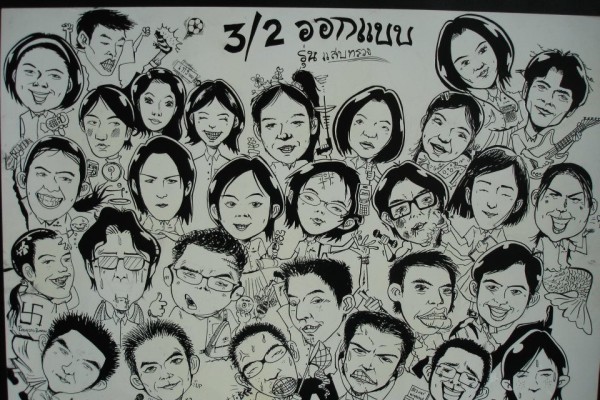 3/2 ออกแบบ
รุ่น แสบทรวง